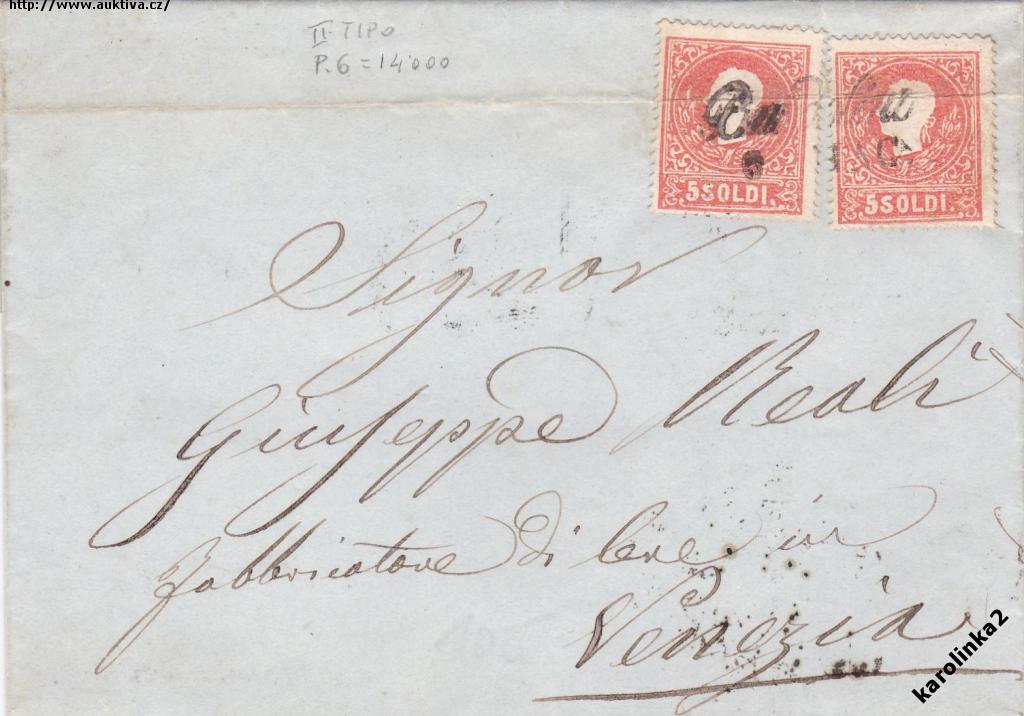 http://www.auktiva.cz/
II TIPO
P.6 = 14'000
5 SOLDI.
5 SOLDI.
Signor
Giuseppe Reali
Fabbricatore di Cere in
Venezia
karolinka2